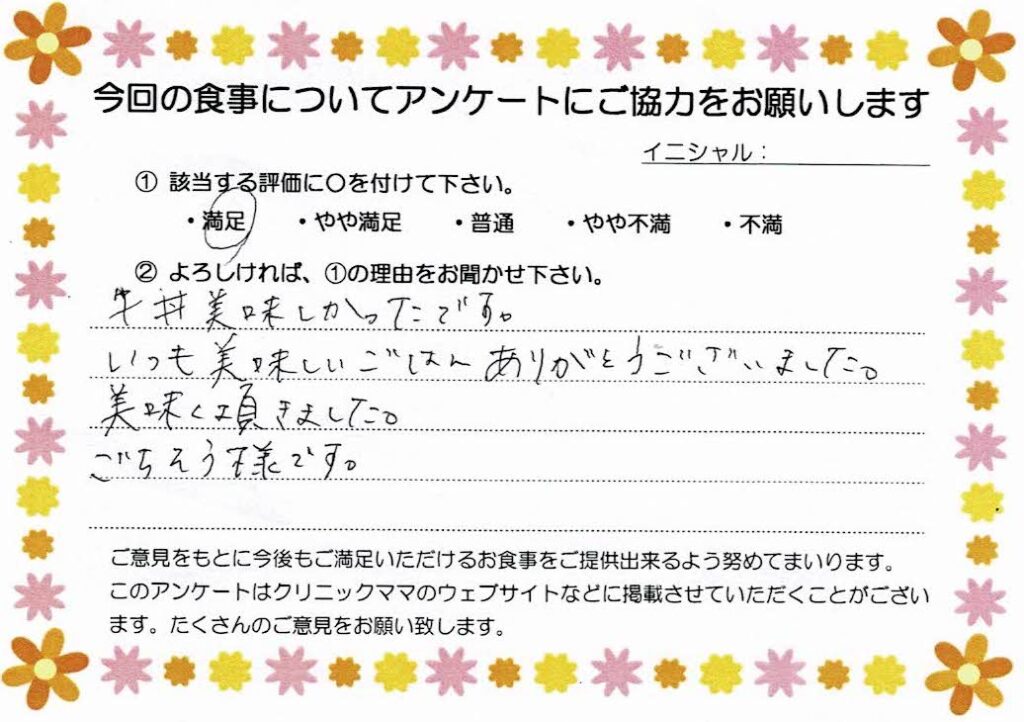 今回の食事についてアンケートにご協力をお願いします
イニシャル：
① 該当する評価に○を付けて下さい。
・満足 ・やや満足 ・普通 ・やや不満 ・不満
② よろしければ、①の理由をお聞かせ下さい。
牛丼美味しかったです。
いつも美味しいごはんありがとうございました。
美味く頂きました。
ごちそう様です。
ご意見をもとに今後もご満足いただけるお食事をご提供出来るよう努めてまいります。
このアンケートはクリニックママのウェブサイトなどに掲載させていただくことがござい
ます。たくさんのご意見をお願い致します。